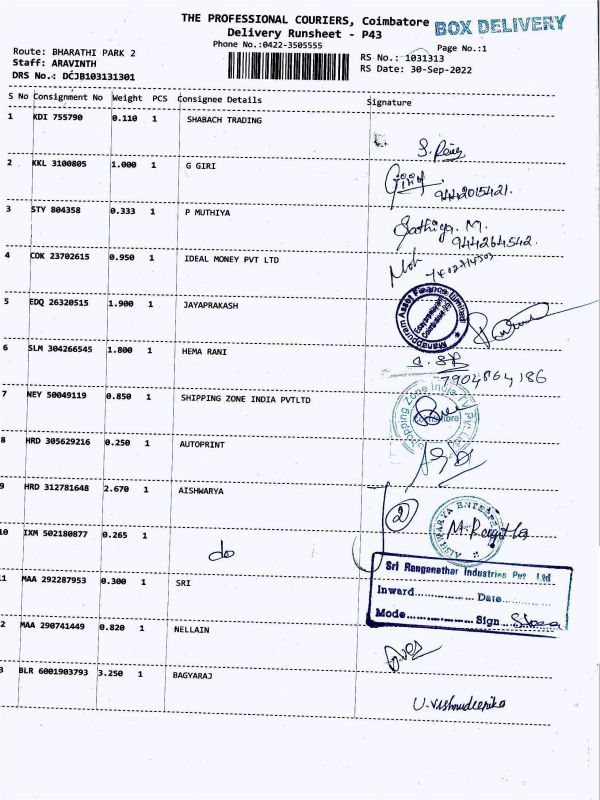 THE PROFESSIONAL COURIERS, Coimbatore
BOX DELIVERY
Delivery Runsheet - P43
Phone No.:0422-3505555
Page No.:1
Route: BHARATHI PARK 2
Staff: ARAVINTH
DRS No.: DCJB103131301
RS No.: 1031313
RS Date: 30-Sep-2022
S No Consignment No Weight PCS Consignee Details Signature
1 KDI 755790 0.110 1 SHABACH TRADING
2 KKL 3100805 1.000 1 G GIRI
9442015421.
3 STY 804358 0.333 1 P MUTHIYA
Sathiya. M.
944264542.
4 COK 23702615 0.950 1 IDEAL MONEY PVT LTD
5 EDQ 26320515 1.900 1 JAYAPRAKASH
Manappuram Asset Finance (Limited)
6 SLM 304266545 1.800 1 HEMA RANI
7904864186
7 NEY 50049119 0.850 1 SHIPPING ZONE INDIA PVTLTD
8 HRD 305629216 0.250 1 AUTOPRINT
9 HRD 312781648 2.670 1 AISHWARYA
2
AISHWARYA ENTERPRISES
10 IXM 502180877 0.265 1 do
Sri Ranganathar Industries Pvt Ltd
11 MAA 292287953 0.300 1 SRI
Inward.................. Date..................
Mode.................. Sign
2 MAA 290741449 0.820 1 NELLAIN
3 BLR 6001903793 3.250 1 BAGYARAJ
U.Vishnudeepika